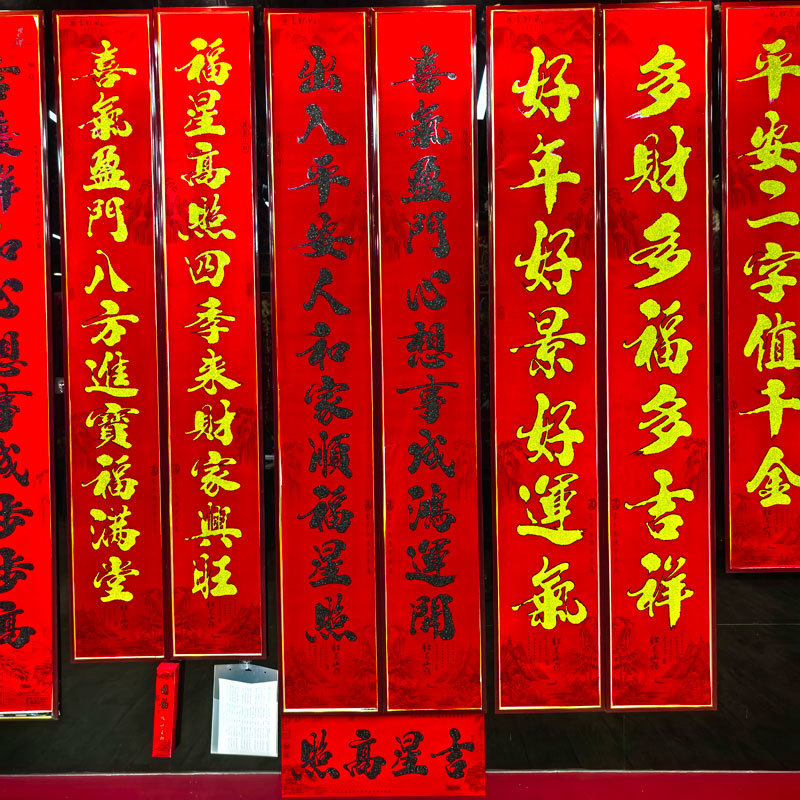 平安二字值千金
多財多福多吉祥
好年好景好運氣
喜氣盈門心想事成鴻運開
出入平安人和家順福星照
吉星高照
福星高照四季来財家興旺
喜氣盈門八方進寶福滿堂
祥和心想事成步步高